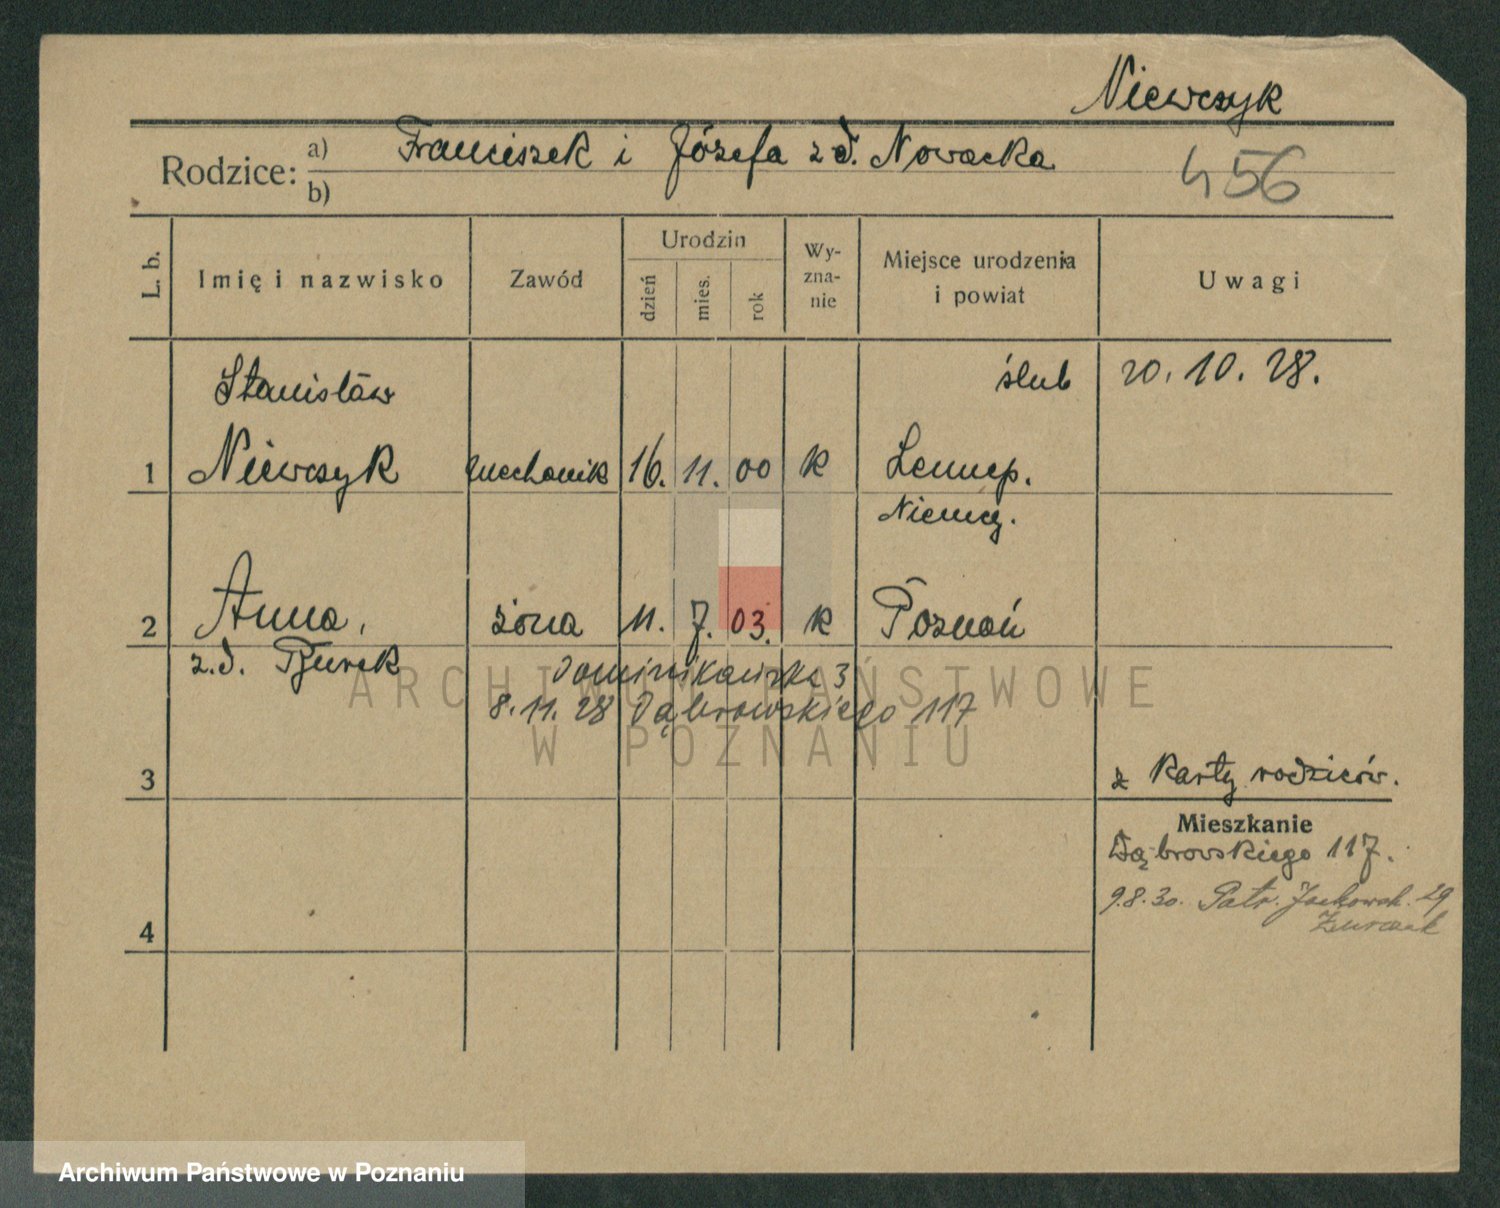 Niewczyk
Rodzice: a) Franciszek i Józefa z d. Nowacka
b)
456
L. b.
Imię i nazwisko
Zawód
Urodzin
dzień
mies.
rok
Wy-
zna-
nie
Miejsce urodzenia
i powiat
Uwagi
Stanisław ślub 20. 10. 28.
1 Niewczyk mechanik 16. 11. 00 k Lennep.
Niemcy.
2 Anna, żona 11. 7. 03. k Poznań
z.d.
Dominikańska 3
8. 11. 28 Dąbrowskiego 117
3
z karty rodziców.
Mieszkanie
Dąbrowskiego 117.
9.8.30. Patr. Jackowsk. 29
4
ARCHIWUM PAŃSTWOWE
W POZNANIU
Archiwum Państwowe w Poznaniu